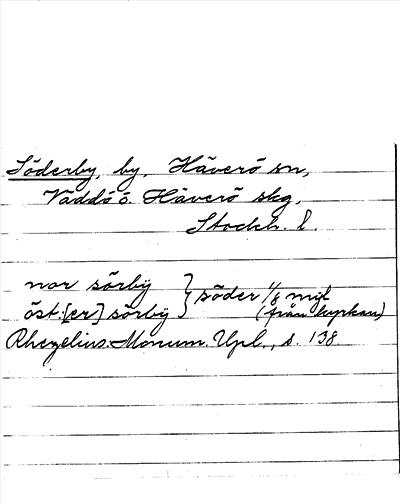 Söderby, by, Häverö sn,
Väddö o. Häverö skg,
Stockh. l.
nor sörbÿ } söder 1/8 mijl
öst:[er] sörbÿ } (från kyrkan)
Rhezelius. Monum. Upl., s. 138.